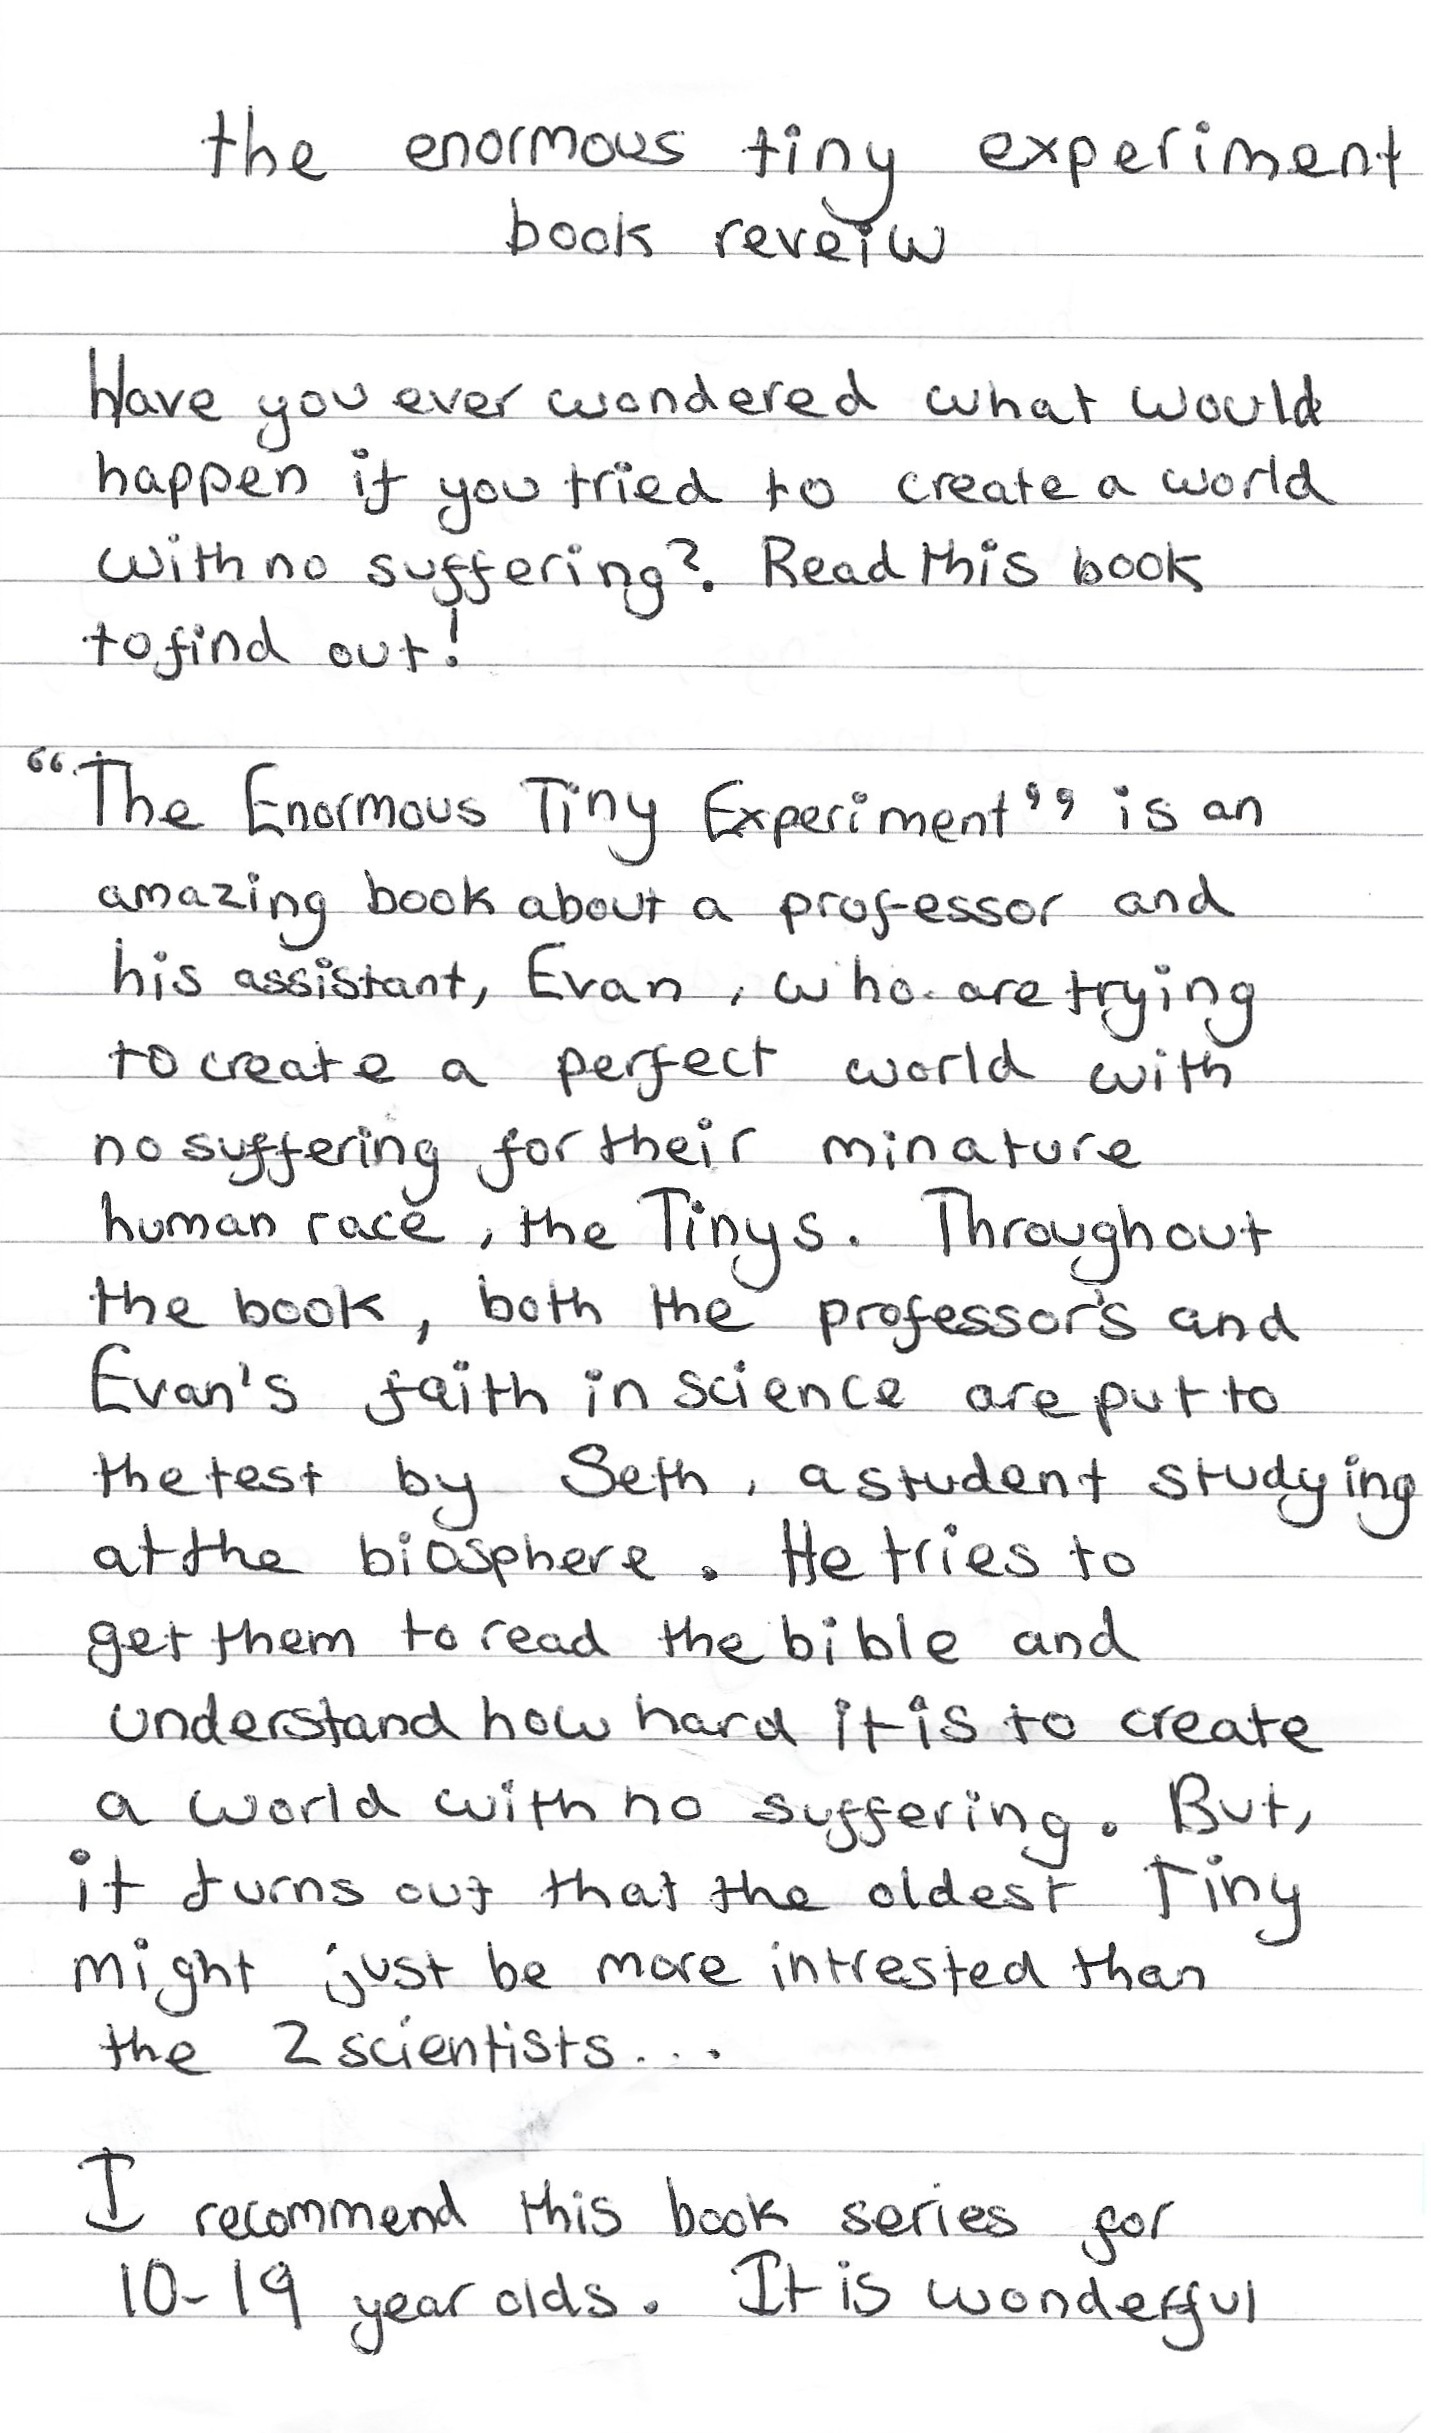 the enormous tiny experiment
book reveiw
Have you ever wondered what would
happen if you tried to create a world
with no suffering?. Read this book
to find out!
“The Enormous Tiny Experiment” is an
amazing book about a professor and
his assistant, Evan, who are trying
to create a perfect world with
no suffering for their minature
human race, the Tinys. Throughout
the book, both the professor's and
Evan's faith in science are put to
the test by Seth, a student studying
at the biosphere. He tries to
get them to read the bible and
understand how hard it is to create
a world with no suffering. But,
it turns out that the oldest Tiny
might just be more intrested than
the 2 scientists...
I recommend this book series for
10-19 year olds. It is wonderful